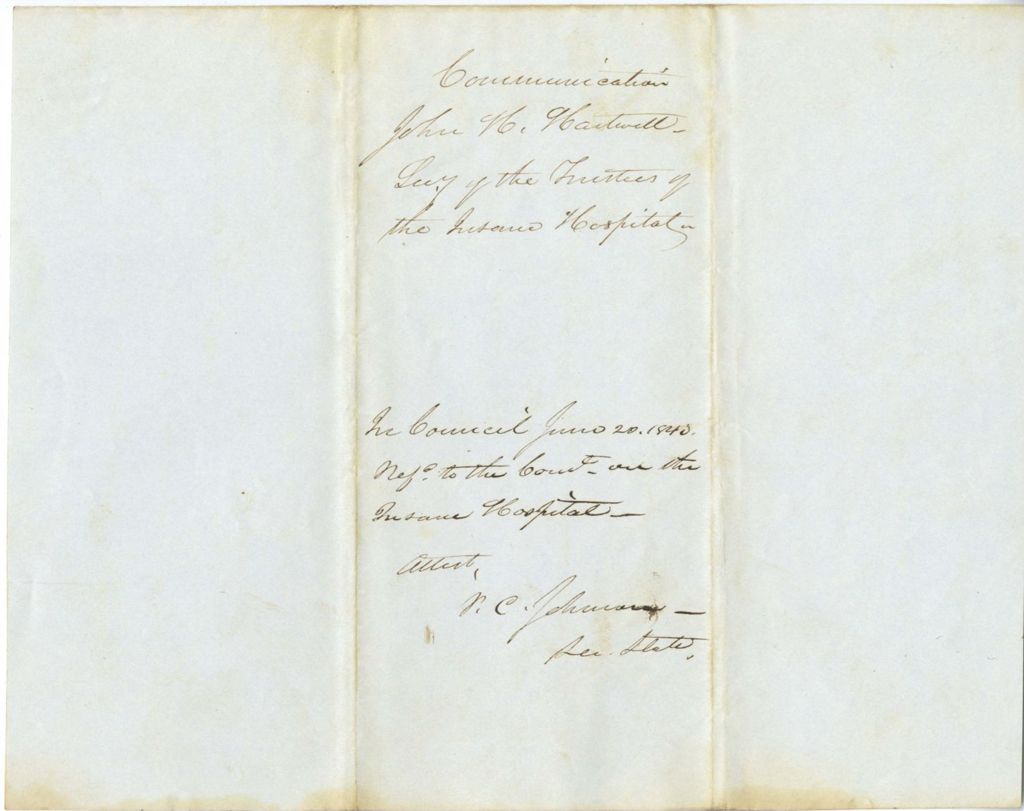 Communication
John H. Hartwell
Secy of the Trustees of
the Insane Hospital
In Council June 20. 1840.
Refd. to the Comte on the
Insane Hospital —
Attest,
P. C. Johnson —
Sec. State.